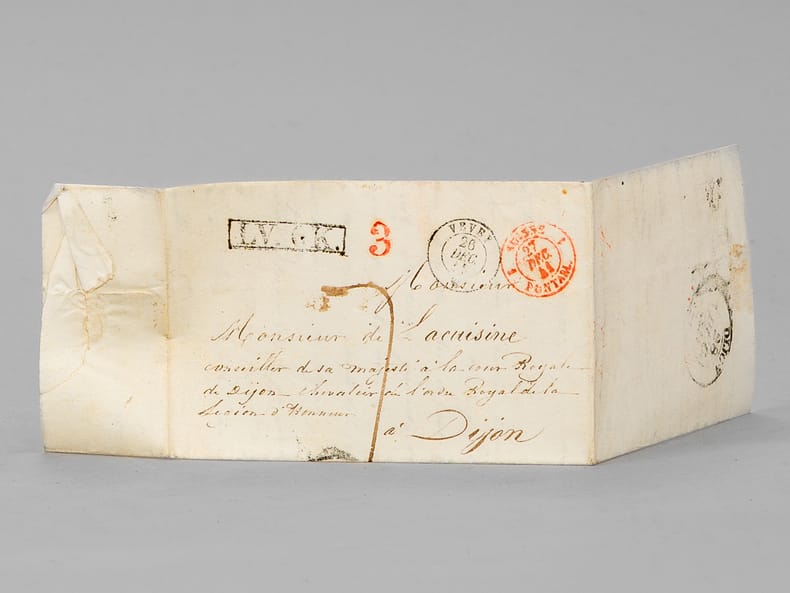 L.V. CK. 3
VEVEY
26
DEC.
SUISSE
27
DEC.
41
PONTARL.
Monsieur
7
Monsieur de Lacuisine
conseiller de sa majesté à la cour Royale
de Dijon chevalier de l'ordre Royal de la
Legion d'honneur
à Dijon
DIJON